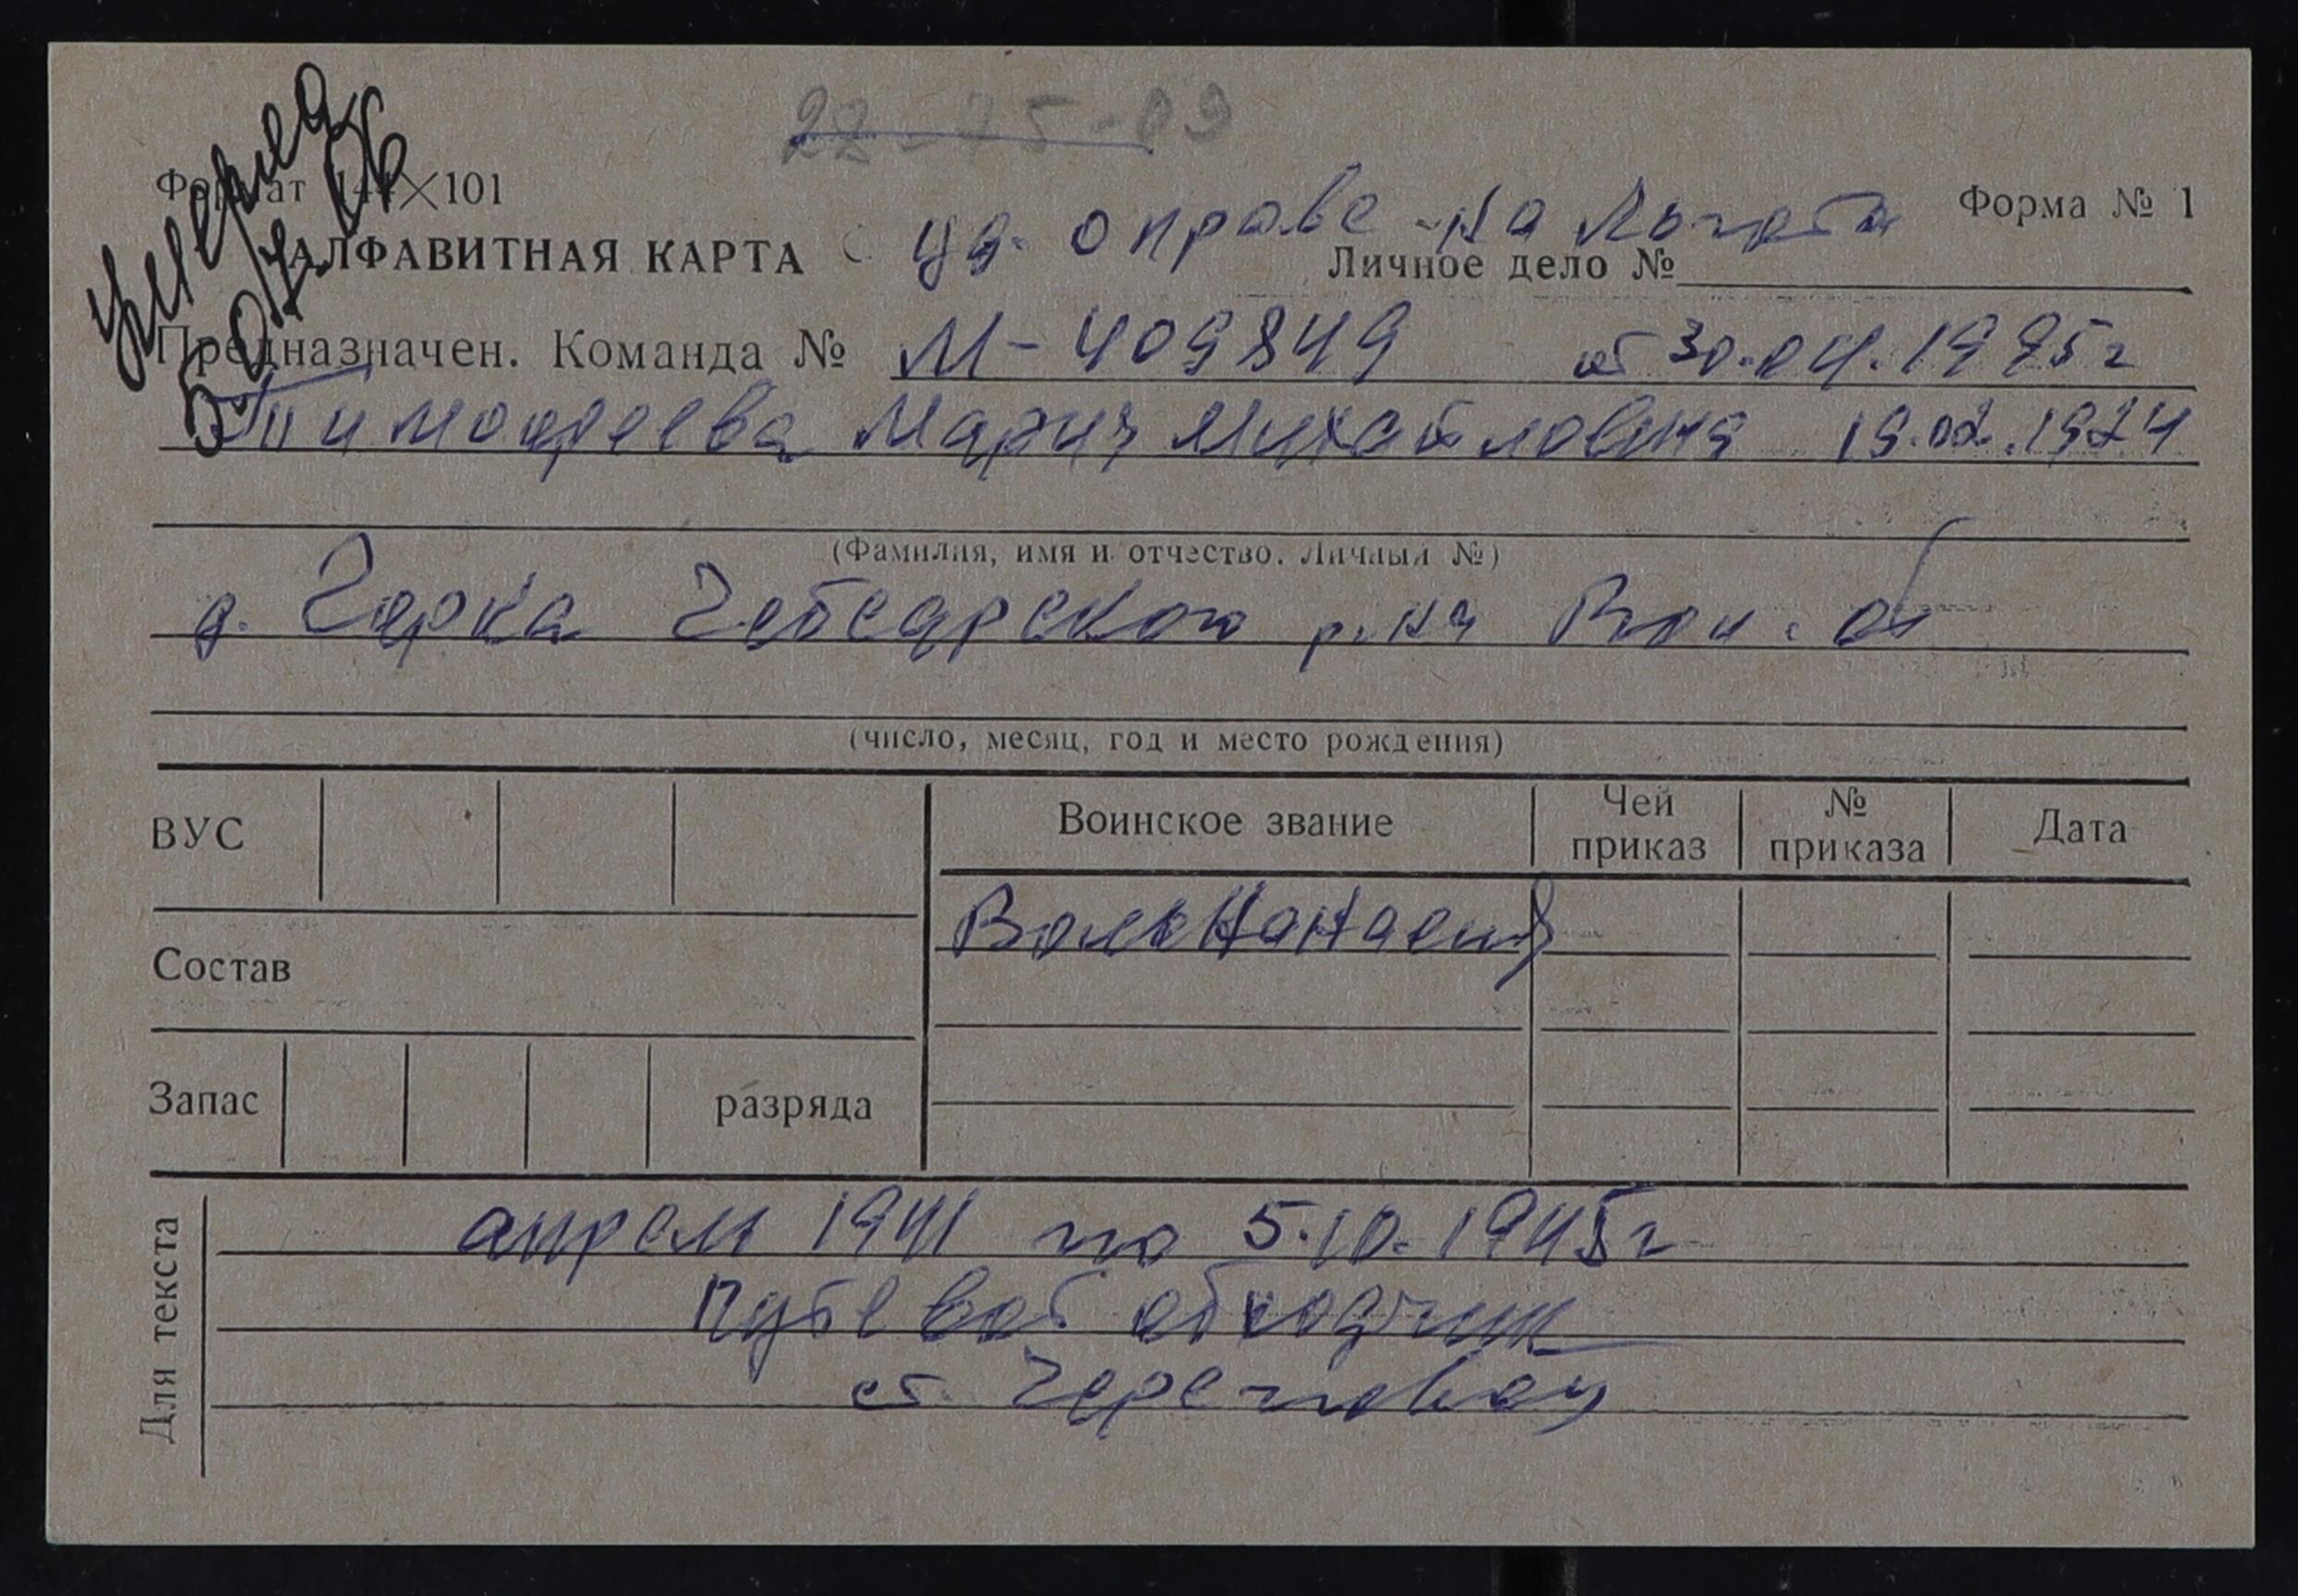 22-75-09
умерла
Формат 144×101
Форма № 1
АЛФАВИТНАЯ КАРТА
уд. о праве на льготы
Личное дело №
Предназначен. Команда № М-409849 от 30.04.1995г
Тимофеева Мария Михайловна 19.02.1924
(Фамилия, имя и отчество. Личный №)
д. Горка Чебсарского р-на Вол. об
(число, месяц, год и место рождения)
ВУС
Воинское звание
Чей приказ
№ приказа
Дата
Вольнонаемн
Состав
Запас
разряда
Для текста
апрель 1941 по 5.10.1945г
путевой обходчик
ст. Череповец